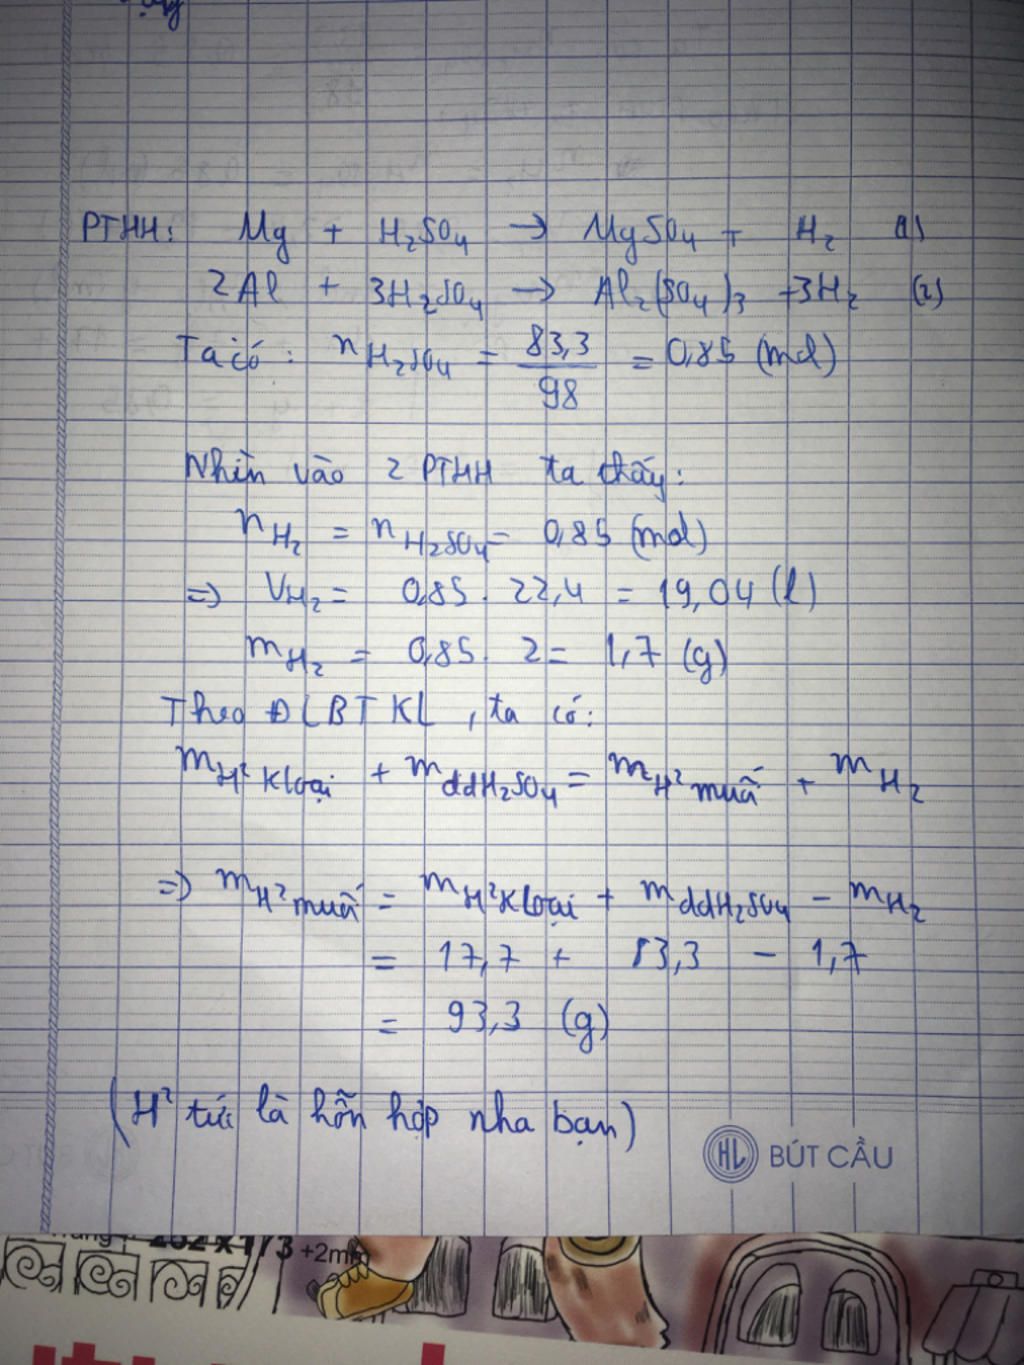 PTHH: Mg + H₂SO₄ → MgSO₄ + H₂ (1)
2Al + 3H₂SO₄ → Al₂(SO₄)₃ + 3H₂ (2)
Ta có: nH₂SO₄ = 83,3 / 98 = 0,85 (mol)
Nhìn vào 2 PTHH ta thấy:
nH₂ = nH₂SO₄ = 0,85 (mol)
=> VH₂ = 0,85 . 22,4 = 19,04 (l)
mH₂ = 0,85 . 2 = 1,7 (g)
Theo ĐLBTKL, ta có:
mH² kloại + mddH₂SO₄ = mH² muối + mH₂
=> mH² muối = mH² kloại + mddH₂SO₄ - mH₂
= 17,7 + 83,3 - 1,7
= 93,3 (g)
(H² tức là hỗn hợp nha bạn)
HL BÚT CẦU
+2mm